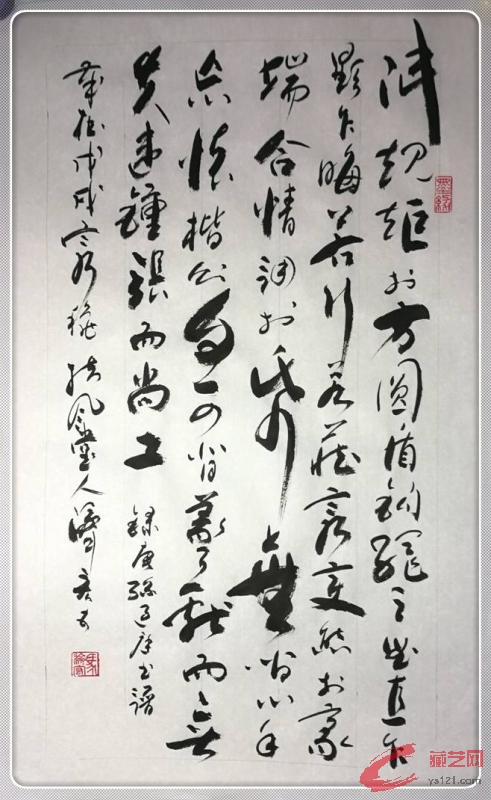 泯規矩於方圓遁鉤繩之曲直乍
顯乍晦若行若藏窮變態於豪
端合情調於紙上無間心手
忘懷楷則自可背羲獻而無
失違鍾張而尚工 錄唐孫過庭書譜
歲在戊戌 風堂人
藏艺网
ys121.com